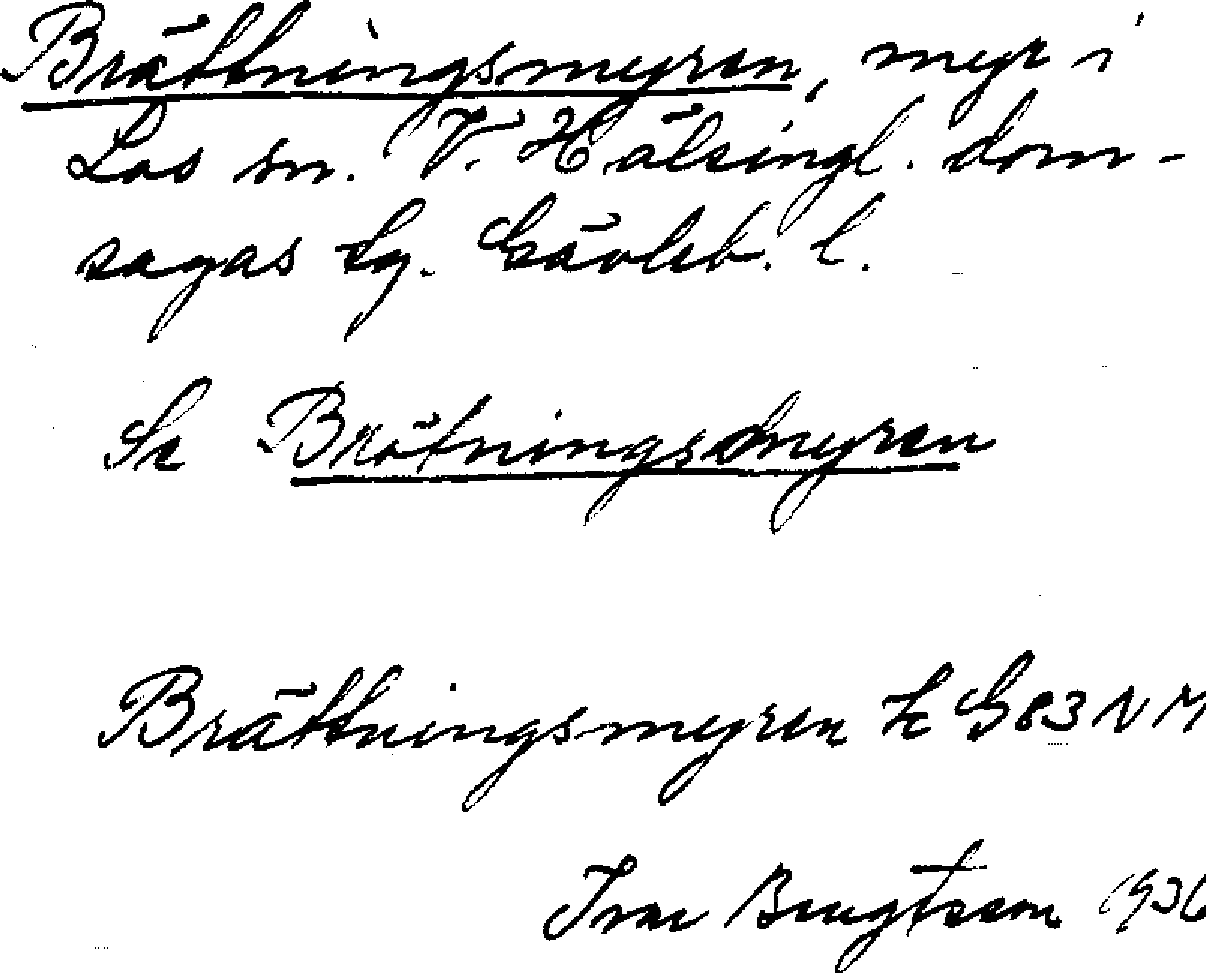 Brättningsmyren, myr i
Los sn. V. Hälsingl. dom-
sagas tg. Gävleb. l.
Se Brötningsmyren
Brättningsmyren k G 83 NM
Ivar Bengtsson 1936